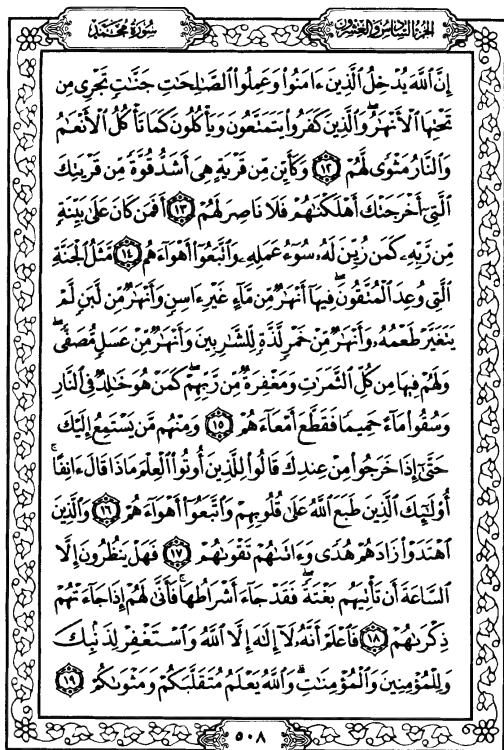 سُورَةُ مُحَمَّدٍ
الجُزْءُ السَّادِسُ وَالعِشْرُونَ
إِنَّ ٱللَّهَ يُدْخِلُ ٱلَّذِينَ ءَامَنُوا۟ وَعَمِلُوا۟ ٱلصَّٰلِحَٰتِ جَنَّٰتٍ تَجْرِى مِن
تَحْتِهَا ٱلْأَنْهَٰرُ ۖ وَٱلَّذِينَ كَفَرُوا۟ يَتَمَتَّعُونَ وَيَأْكُلُونَ كَمَا تَأْكُلُ ٱلْأَنْعَٰمُ
وَٱلنَّارُ مَثْوًى لَّهُمْ ١٢ وَكَأَيِّن مِّن قَرْيَةٍ هِىَ أَشَدُّ قُوَّةً مِّن قَرْيَتِكَ
ٱلَّتِىٓ أَخْرَجَتْكَ أَهْلَكْنَٰهُمْ فَلَا نَاصِرَ لَهُمْ ١٣ أَفَمَن كَانَ عَلَىٰ بَيِّنَةٍ
مِّن رَّبِّهِۦ كَمَن زُيِّنَ لَهُۥ سُوٓءُ عَمَلِهِۦ وَٱتَّبَعُوٓا۟ أَهْوَآءَهُم ١٤ مَّثَلُ ٱلْجَنَّةِ
ٱلَّتِى وُعِدَ ٱلْمُتَّقُونَ ۖ فِيهَآ أَنْهَٰرٌ مِّن مَّآءٍ غَيْرِ ءَاسِنٍ وَأَنْهَٰرٌ مِّن لَّبَنٍ لَّمْ
يَتَغَيَّرْ طَعْمُهُۥ وَأَنْهَٰرٌ مِّنْ خَمْرٍ لَّذَّةٍ لِّلشَّٰرِبِينَ وَأَنْهَٰرٌ مِّنْ عَسَلٍ مُّصَفًّى ۖ
وَلَهُمْ فِيهَا مِن كُلِّ ٱلثَّمَرَٰتِ وَمَغْفِرَةٌ مِّن رَّبِّهِمْ ۖ كَمَنْ هُوَ خَٰلِدٌ فِى ٱلنَّارِ
وَسُقُوا۟ مَآءً حَمِيمًا فَقَطَّعَ أَمْعَآءَهُمْ ١٥ وَمِنْهُم مَّن يَسْتَمِعُ إِلَيْكَ
حَتَّىٰٓ إِذَا خَرَجُوا۟ مِنْ عِندِكَ قَالُوا۟ لِلَّذِينَ أُوتُوا۟ ٱلْعِلْمَ مَاذَا قَالَ ءَانِفًا ۚ
أُو۟لَٰٓئِكَ ٱلَّذِينَ طَبَعَ ٱللَّهُ عَلَىٰ قُلُوبِهِمْ وَٱتَّبَعُوٓا۟ أَهْوَآءَهُمْ ١٦ وَٱلَّذِينَ
ٱهْتَدَوْا۟ زَادَهُمْ هُدًى وَءَاتَىٰهُمْ تَقْوَىٰهُمْ ١٧ فَهَلْ يَنظُرُونَ إِلَّا
ٱلسَّاعَةَ أَن تَأْتِيَهُم بَغْتَةً ۖ فَقَدْ جَآءَ أَشْرَاطُهَا ۚ فَأَنَّىٰ لَهُمْ إِذَا جَآءَتْهُمْ
ذِكْرَىٰهُمْ ١٨ فَٱعْلَمْ أَنَّهُۥ لَآ إِلَٰهَ إِلَّا ٱللَّهُ وَٱسْتَغْفِرْ لِذَنۢبِكَ
وَلِلْمُؤْمِنِينَ وَٱلْمُؤْمِنَٰتِ ۗ وَٱللَّهُ يَعْلَمُ مُتَقَلَّبَكُمْ وَمَثْوَىٰكُمْ ١٩
٥٠٨